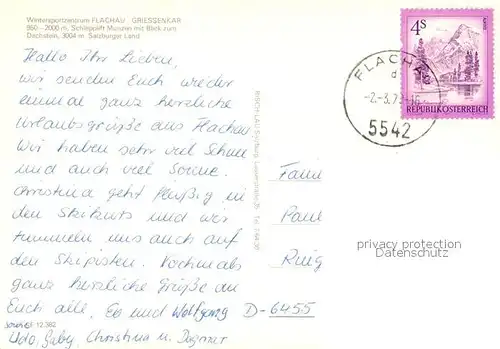 Wintersportzentrum FLACHAU GRIESSENKAR
860 - 2000 m, Schilepplift Munzen mit Blick zum
Dachstein, 3004 m Salzburger Land
Hallo Ihr Lieben,
wir senden Euch wieder
einmal ganz herzliche
Urlaubsgrüße aus Flachau
Wir haben sehr viel Schnee
und auch viel Sonne.
Christina geht fleißig in
den Skikurs und wir
tummeln uns auch auf
den Skipisten. Nochmals
ganz herzliche Grüße an
Euch alle, Eva und Wolfgang
Udo, Gaby, Christina u. Dagmar
F 12.382
4S
REPUBLIK ÖSTERREICH
FLACHAU
d
-2.-3.79-16
5542
Fam
Paul
Ring
D-6455
privacy protection
Datenschutz